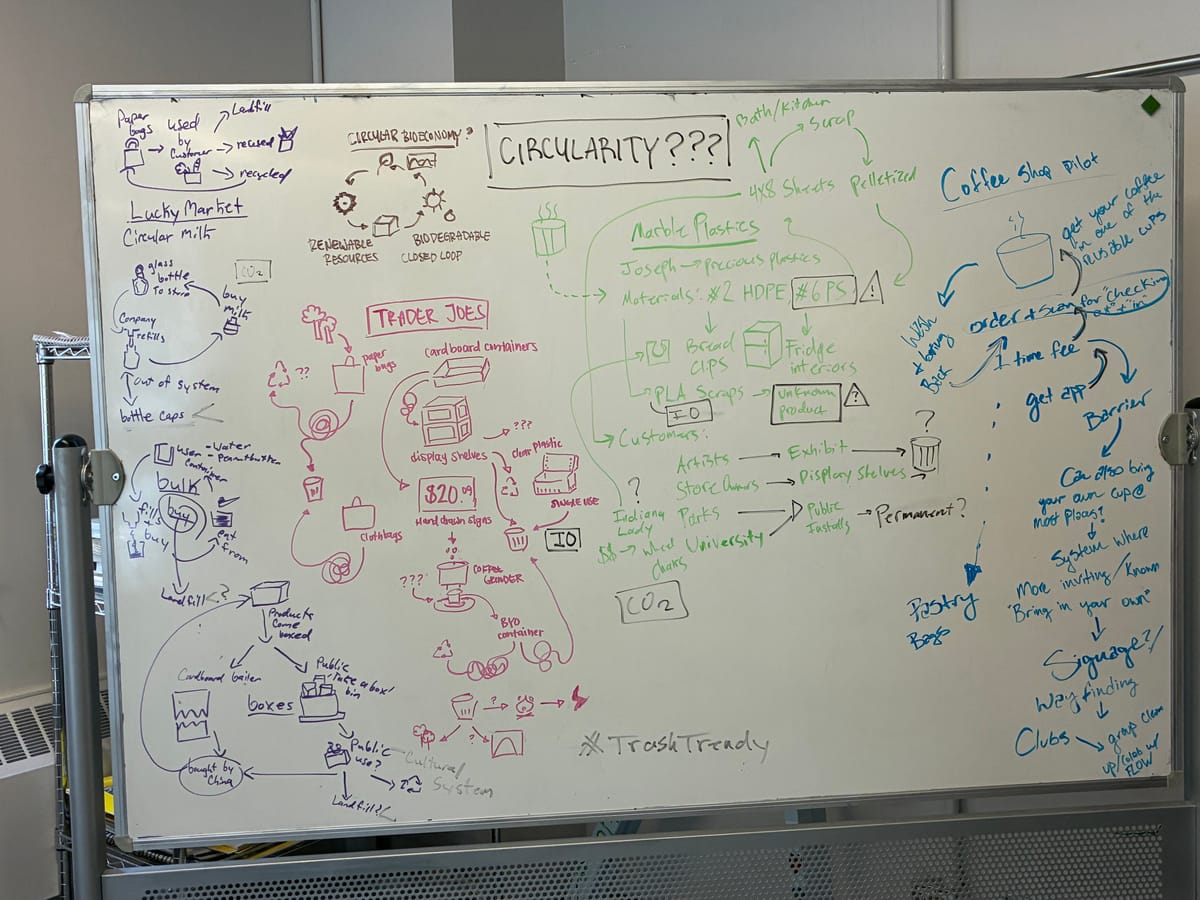 CIRCULARITY???
Paper
bags
used
by
Customer
Landfill
reused
recycled
Lucky Market
Circular milk
glass
bottle
to store
CO2
buy
milk
Company
refills
out of system
bottle caps
- Water
bulk
buy
fills
buy
eat
from
Landfill?
Products
Come
boxed
Cardboard bailer
Public
'take a box'
bin
boxes
Public
use?
Cultural
System
bought by
China
Landfill?
CIRCULAR BIOECONOMY?
RENEWABLE
RESOURCES
BIODEGRADABLE
CLOSED LOOP
TRADER JOES
??
paper
bags
cardboard containers
display shelves
???
clear plastic
SINGLE USE
$20.09
Hand drawn signs
IO
clothbags
COFFEE
GRINDER
???
BYO
container
?
?
#TrashTrendy
Bath/Kitchen
Scrap
4x8 Sheets
Pelletized
?
Marble Plastics
Joseph → precious plastics
Materials: #2 HDPE #6 PS !
Bread
clips
Fridge
interiors
PLA Scraps → unknown
product ?
IO
Customers:
Artists → Exhibit →
?
Store Owners → Display shelves →?
Parks
Public
Installs → Permanent?
University
?
Indiana
Lady
$$ → what
chairs
CO2
Coffee Shop pilot
get your coffee
in one of the
reusable cups
Wash
+ bring
Back
order + scan for "checking
out" + "in"
1 time fee
get app
Barrier
Can also bring
your own cup@
most places?
System where
More inviting/known
"Bring in your own"
Signage?/
Way finding
Clubs
group clean
up/colab w/
FLOW
Pastry
Bags